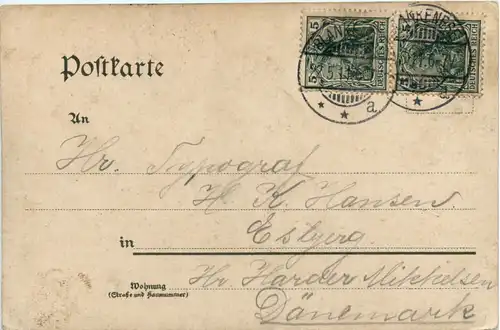 5 5 DEUTSCHES REICH
Postkarte
a
An
Hr. Typograf
H. K. Hansen
Esbjerg
in
Hr. Harder Mikkelsen
Wohnung
(Straße und Hausnummer)
Dänemark